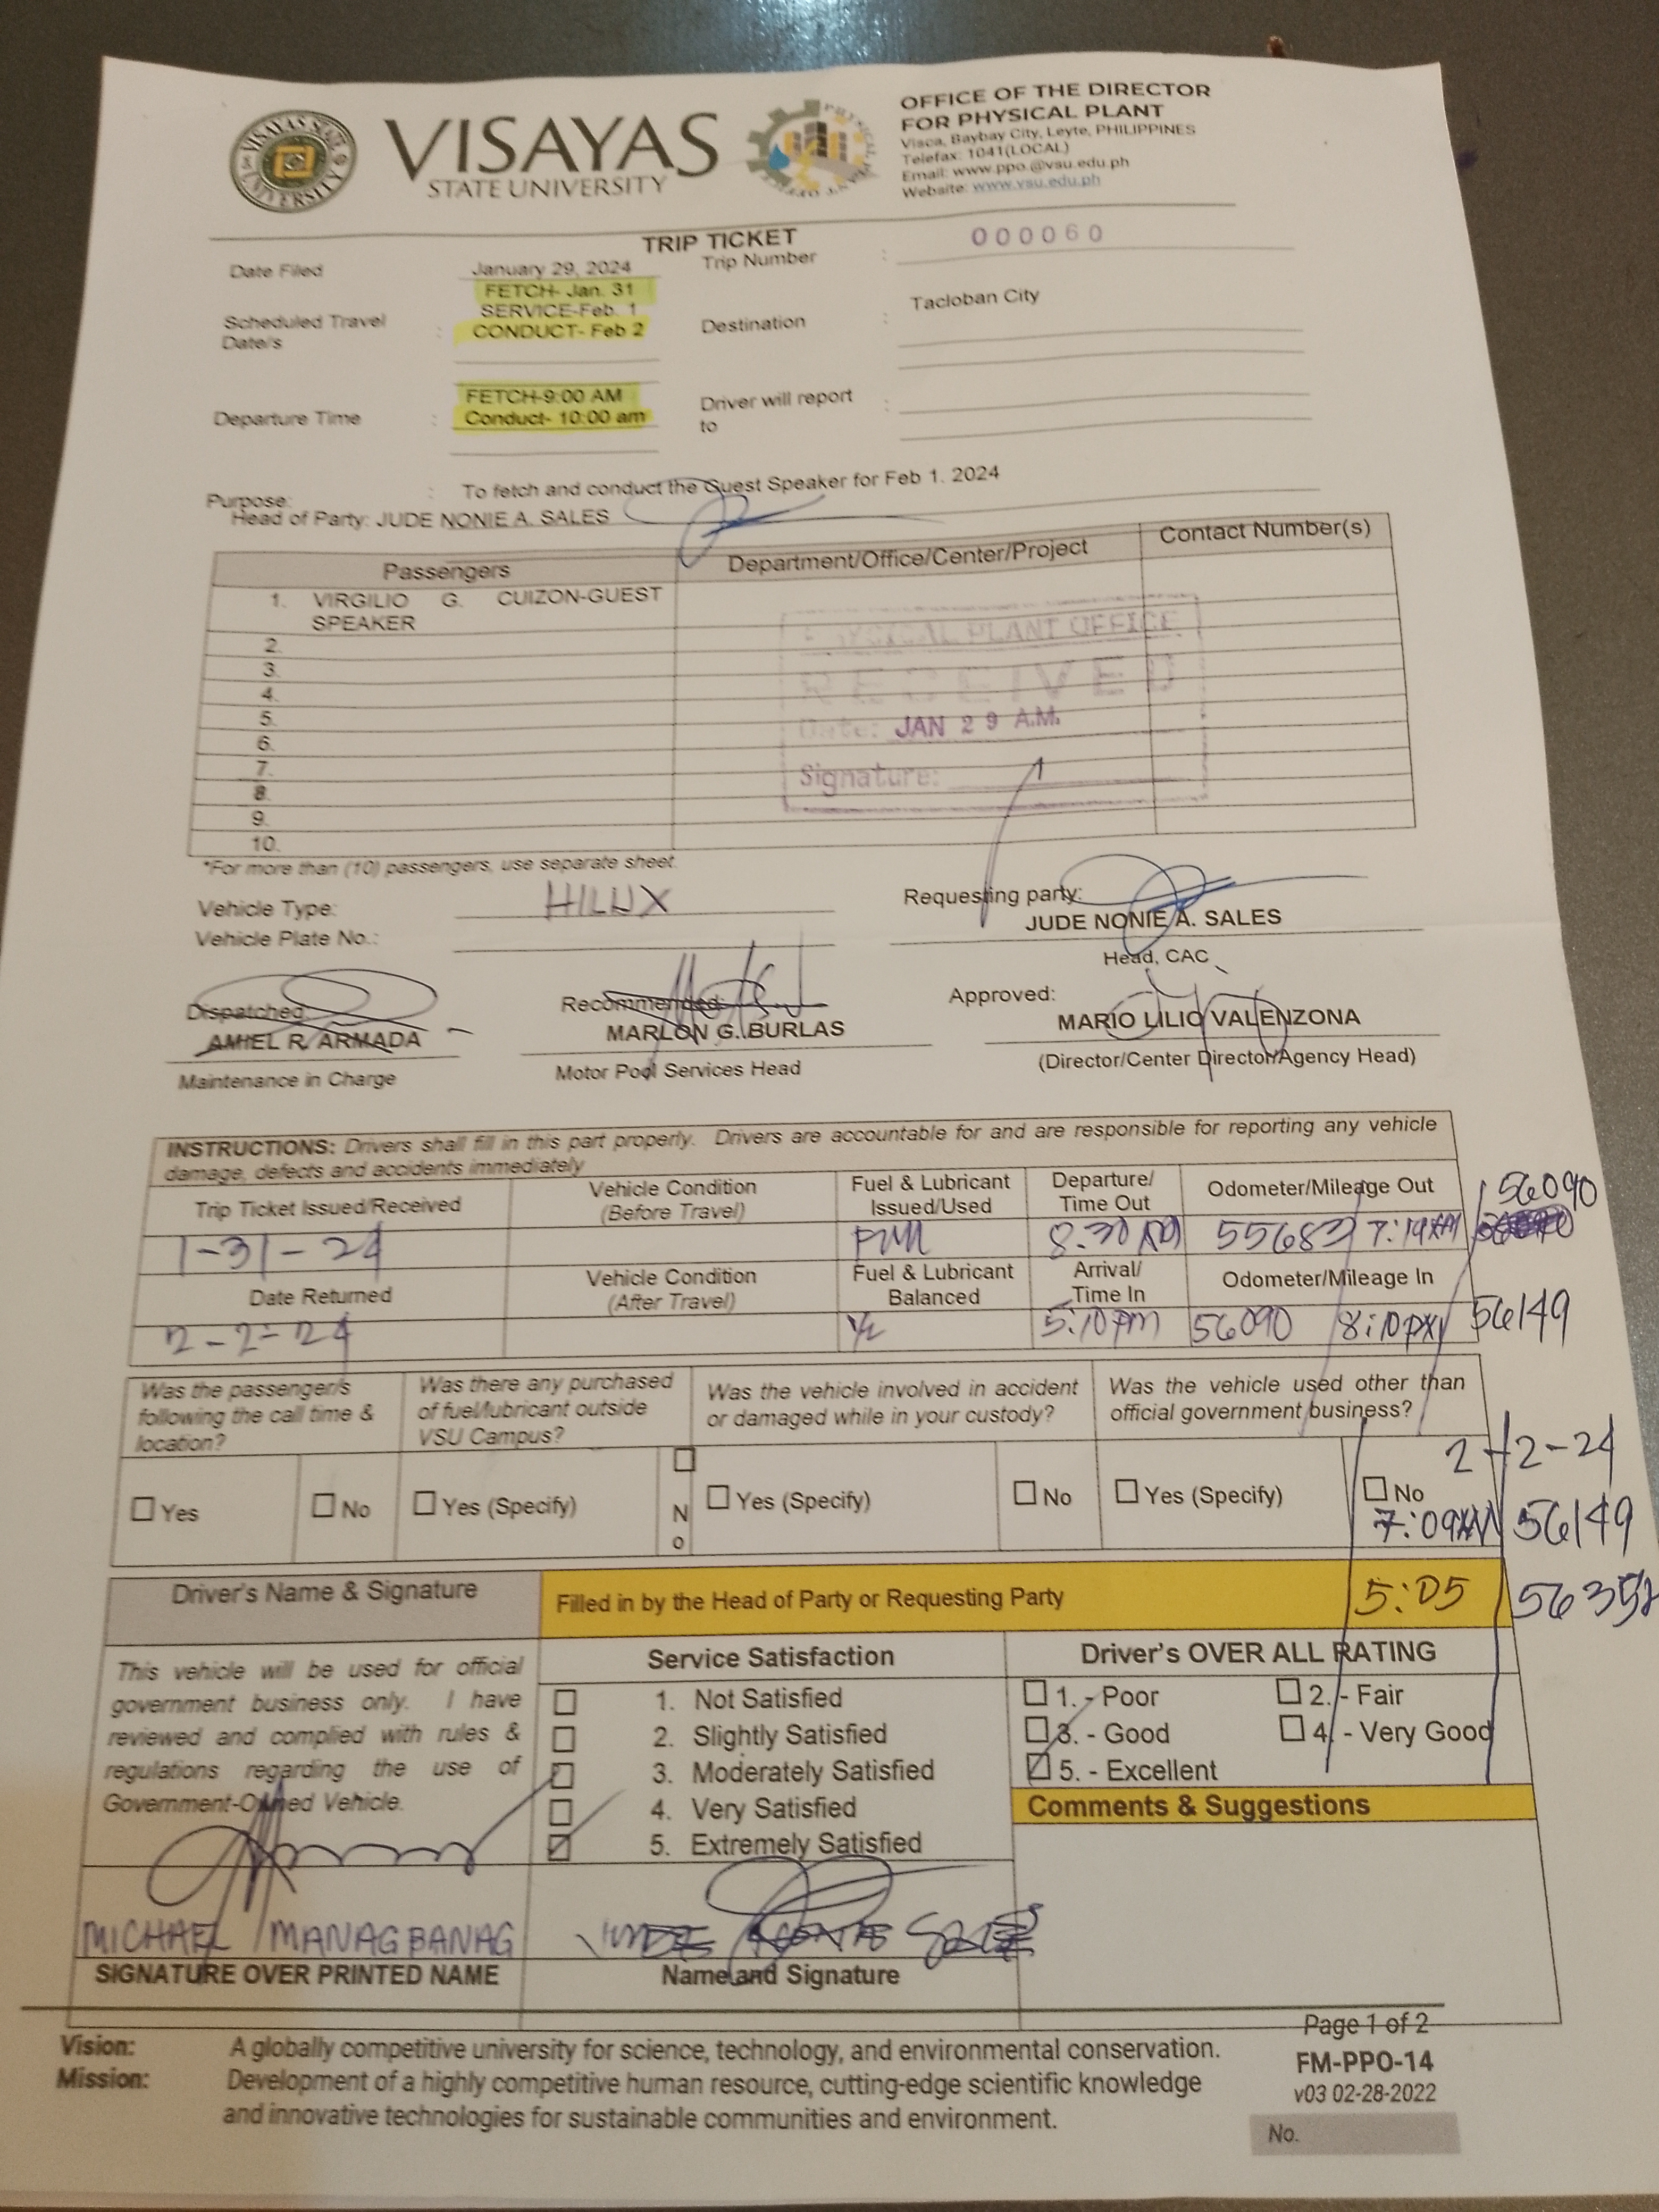 VISAYAS
STATE UNIVERSITY
OFFICE OF THE DIRECTOR
FOR PHYSICAL PLANT
Visca, Baybay City, Leyte, PHILIPPINES
Telefax: 1041(LOCAL)
Email: www.ppo.@vsu.edu.ph
Website: www.vsu.edu.ph
TRIP TICKET
Date Filed January 29, 2024 Trip Number : 000060
Scheduled Travel Date/s : FETCH- Jan. 31
SERVICE-Feb. 1
CONDUCT- Feb 2
Destination : Tacloban City
Departure Time : FETCH-9:00 AM
Conduct- 10:00 am
Driver will report to :
Purpose: : To fetch and conduct the Guest Speaker for Feb 1. 2024
Head of Party: JUDE NONIE A. SALES
Passengers Department/Office/Center/Project Contact Number(s)
1. VIRGILIO G. CUIZON-GUEST
SPEAKER
2.
3.
4.
5.
6.
7.
8.
9.
10.
PHYSICAL PLANT OFFICE
RECEIVED
Date: JAN 29 A.M.
Signature:
*For more than (10) passengers, use separate sheet.
Vehicle Type: HILUX
Vehicle Plate No.:
Requesting party:
JUDE NONIE A. SALES
Head, CAC
Dispatched: Recommended: Approved:
AMIEL R. ARMADA MARLON G. BURLAS MARIO LILIO VALENZONA
Maintenance in Charge Motor Pool Services Head (Director/Center Director/Agency Head)
INSTRUCTIONS: Drivers shall fill in this part properly. Drivers are accountable for and are responsible for reporting any vehicle
damage, defects and accidents immediately
Trip Ticket Issued/Received Vehicle Condition (Before Travel) Fuel & Lubricant Issued/Used Departure/ Time Out Odometer/Mileage Out 56090
1-31-24 Full 8:30 AM 55683 7:14AM
Date Returned Vehicle Condition (After Travel) Fuel & Lubricant Balanced Arrival/ Time In Odometer/Mileage In
2-2-24 1/2 5:10pm 56090 8:10pm 56149
Was the passenger/s
following the call time &
location?
Was there any purchased
of fuel/lubricant outside
VSU Campus?
Was the vehicle involved in accident
or damaged while in your custody?
Was the vehicle used other than
official government business?
2-2-24
Yes No Yes (Specify) No Yes (Specify) No Yes (Specify) No
7:09AM 56149
Driver's Name & Signature Filled in by the Head of Party or Requesting Party 5:05
This vehicle will be used for official
government business only. I have
reviewed and complied with rules &
regulations regarding the use of
Government-Owned Vehicle.
Service Satisfaction
1. Not Satisfied
2. Slightly Satisfied
3. Moderately Satisfied
4. Very Satisfied
5. Extremely Satisfied
Driver's OVER ALL RATING
1. - Poor 2. - Fair
3. - Good 4. - Very Good
5. - Excellent
Comments & Suggestions
MICHAEL MANAGBANAG
SIGNATURE OVER PRINTED NAME Name and Signature
Page 1 of 2
Vision: A globally competitive university for science, technology, and environmental conservation.
Mission: Development of a highly competitive human resource, cutting-edge scientific knowledge
and innovative technologies for sustainable communities and environment.
FM-PPO-14
v03 02-28-2022
No.